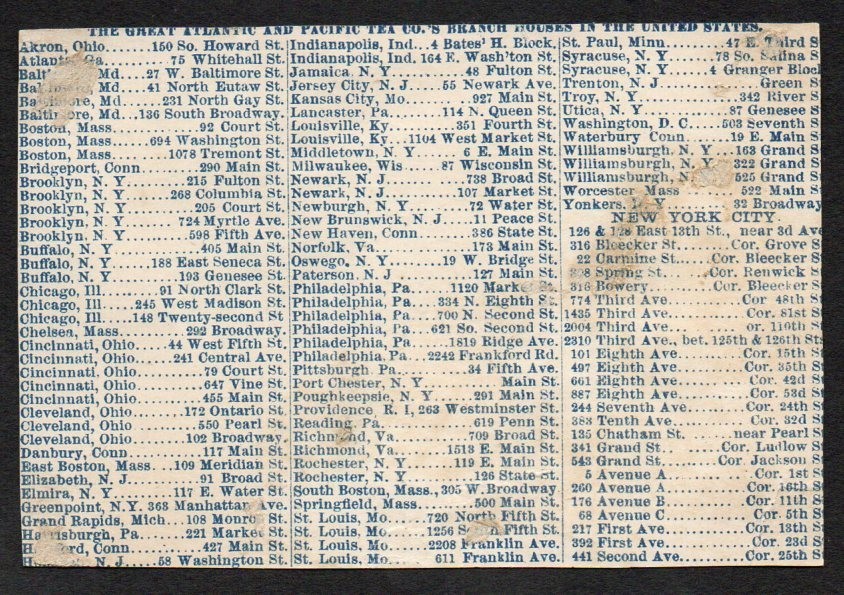 THE GREAT ATLANTIC AND PACIFIC TEA CO.'S BRANCH HOUSES IN THE UNITED STATES.
Akron, Ohio........150 So. Howard St.
Atlanta, Ga............75 Whitehall St.
Md....27 W. Baltimore St.
Md....41 North Eutaw St.
Baltimore, Md......231 North Gay St.
Baltimore, Md...136 South Broadway.
Boston, Mass..............92 Court St.
Boston, Mass......694 Washington St.
Boston, Mass.........1078 Tremont St.
Bridgeport, Conn..........290 Main St.
Brooklyn, N. Y..........215 Fulton St.
Brooklyn, N. Y.......268 Columbia St.
Brooklyn, N. Y...........205 Court St.
Brooklyn, N. Y.......724 Myrtle Ave.
Brooklyn, N. Y........598 Fifth Ave.
Buffalo, N. Y..............405 Main St.
Buffalo, N. Y......188 East Seneca St.
Buffalo, N. Y..........193 Genesee St.
Chicago, Ill..........91 North Clark St.
Chicago, Ill.....245 West Madison St.
Chicago, Ill.....148 Twenty-second St
Chelsea, Mass...........292 Broadway.
Cincinnati, Ohio.....44 West Fifth St.
Cincinnati, Ohio......241 Central Ave.
Cincinnati, Ohio...........79 Court St.
Cincinnati, Ohio...........647 Vine St.
Cincinnati, Ohio...........455 Main St.
Cleveland, Ohio.........172 Ontario St.
Cleveland, Ohio...........550 Pearl St.
Cleveland, Ohio.........102 Broadway.
Danbury, Conn............117 Main St.
East Boston, Mass...109 Meridian St.
Elizabeth, N. J.............91 Broad St.
Elmira, N. Y.......117 E. Water St.
Greenpoint, N.Y. 363 Manhattan Ave.
Grand Rapids, Mich..108 Monroe St.
Harrisburgh, Pa........221 Market St.
Hartford, Conn...........427 Main St.
N. J......58 Washington St.
Indianapolis, Ind...4 Bates' H. Block.
Indianapolis, Ind. 164 E. Wash'ton St.
Jamaica, N. Y.............48 Fulton St.
Jersey City, N. J.....55 Newark Ave.
Kansas City, Mo..........927 Main St.
Lancaster, Pa.........114 N. Queen St.
Louisville, Ky............351 Fourth St.
Louisville, Ky...1104 West Market St.
Middletown, N. Y.......6 E. Main St.
Milwaukee, Wis......87 Wisconsin St.
Newark, N. J.............738 Broad St.
Newark, N. J...........107 Market St.
Newburgh, N. Y..........72 Water St.
New Brunswick, N. J.....11 Peace St.
New Haven, Conn.........386 State St.
Norfolk, Va...............173 Main St.
Oswego, N. Y.......19 W. Bridge St.
Paterson, N. J............127 Main St.
Philadelphia, Pa......1120 Market St.
Philadelphia, Pa....334 N. Eighth St.
Philadelphia, Pa....700 N. Second St.
Philadelphia, Pa...621 So. Second St.
Philadelphia, Pa.......1819 Ridge Ave.
Philadelphia, Pa...2242 Frankford Rd.
Pittsburg, Pa............34 Fifth Ave.
Port Chester, N. Y...........Main St.
Poughkeepsie, N. Y.......291 Main St.
Providence, R. I, 263 Westminster St.
Reading, Pa................619 Penn St.
Richmond, Va.............709 Broad St.
Richmond, Va..........1513 E. Main St.
Rochester, N. Y.......119 E. Main St.
Rochester, N. Y..........126 State St.
South Boston, Mass., 305 W. Broadway
Springfield, Mass..........500 Main St.
St. Louis, Mo......720 North Fifth St.
St. Louis, Mo......1256 Fifth St.
St. Louis, Mo......2208 Franklin Ave.
St. Louis, Mo......611 Franklin Ave.
St. Paul, Minn........47 E. Third S
Syracuse, N. Y......78 So. Salina S
Syracuse, N. Y.....4 Granger Block
Trenton, N. J..............Green S
Troy, N. Y..............342 River S
Utica, N. Y...........87 Genesee S
Washington, D. C....503 Seventh S
Waterbury Conn......19 E. Main S
Williamsburg, N. Y...163 Grand S
Williamsburg, N. Y...322 Grand S
Williamsburg, N. ...525 Grand S
Worcester Mass........522 Main S
Yonkers, N. Y.........32 Broadway
NEW YORK CITY.
126 & 128 East 13th St., near 3d Ave
316 Bleecker St........Cor. Grove S
22 Carmine St.....Cor. Bleecker S
Spring St......Cor. Renwick S
Bowery.........Cor. Bleecker S
774 Third Ave..........Cor 48th S
1435 Third Ave..........Cor. 81st S
2004 Third Ave..........or. 110th S
2310 Third Ave., bet. 125th & 126th Sts
101 Eighth Ave..........Cor. 15th S
497 Eighth Ave..........Cor. 35th S
661 Eighth Ave..........Cor. 42d S
887 Eighth Ave..........Cor. 53d S
244 Seventh Ave........Cor. 24th S
383 Tenth Ave...........Cor. 32d S
135 Chatham St.......near Pearl S
341 Grand St.........Cor. Ludlow S
543 Grand St........Cor. Jackson S
5 Avenue A............Cor. 1st S
260 Avenue A...........Cor. 16th S
176 Avenue B...........Cor. 11th S
68 Avenue C............Cor. 5th S
217 First Ave...........Cor. 13th S
392 First Ave...........Cor. 23d S
441 Second Ave.........Cor. 25th S